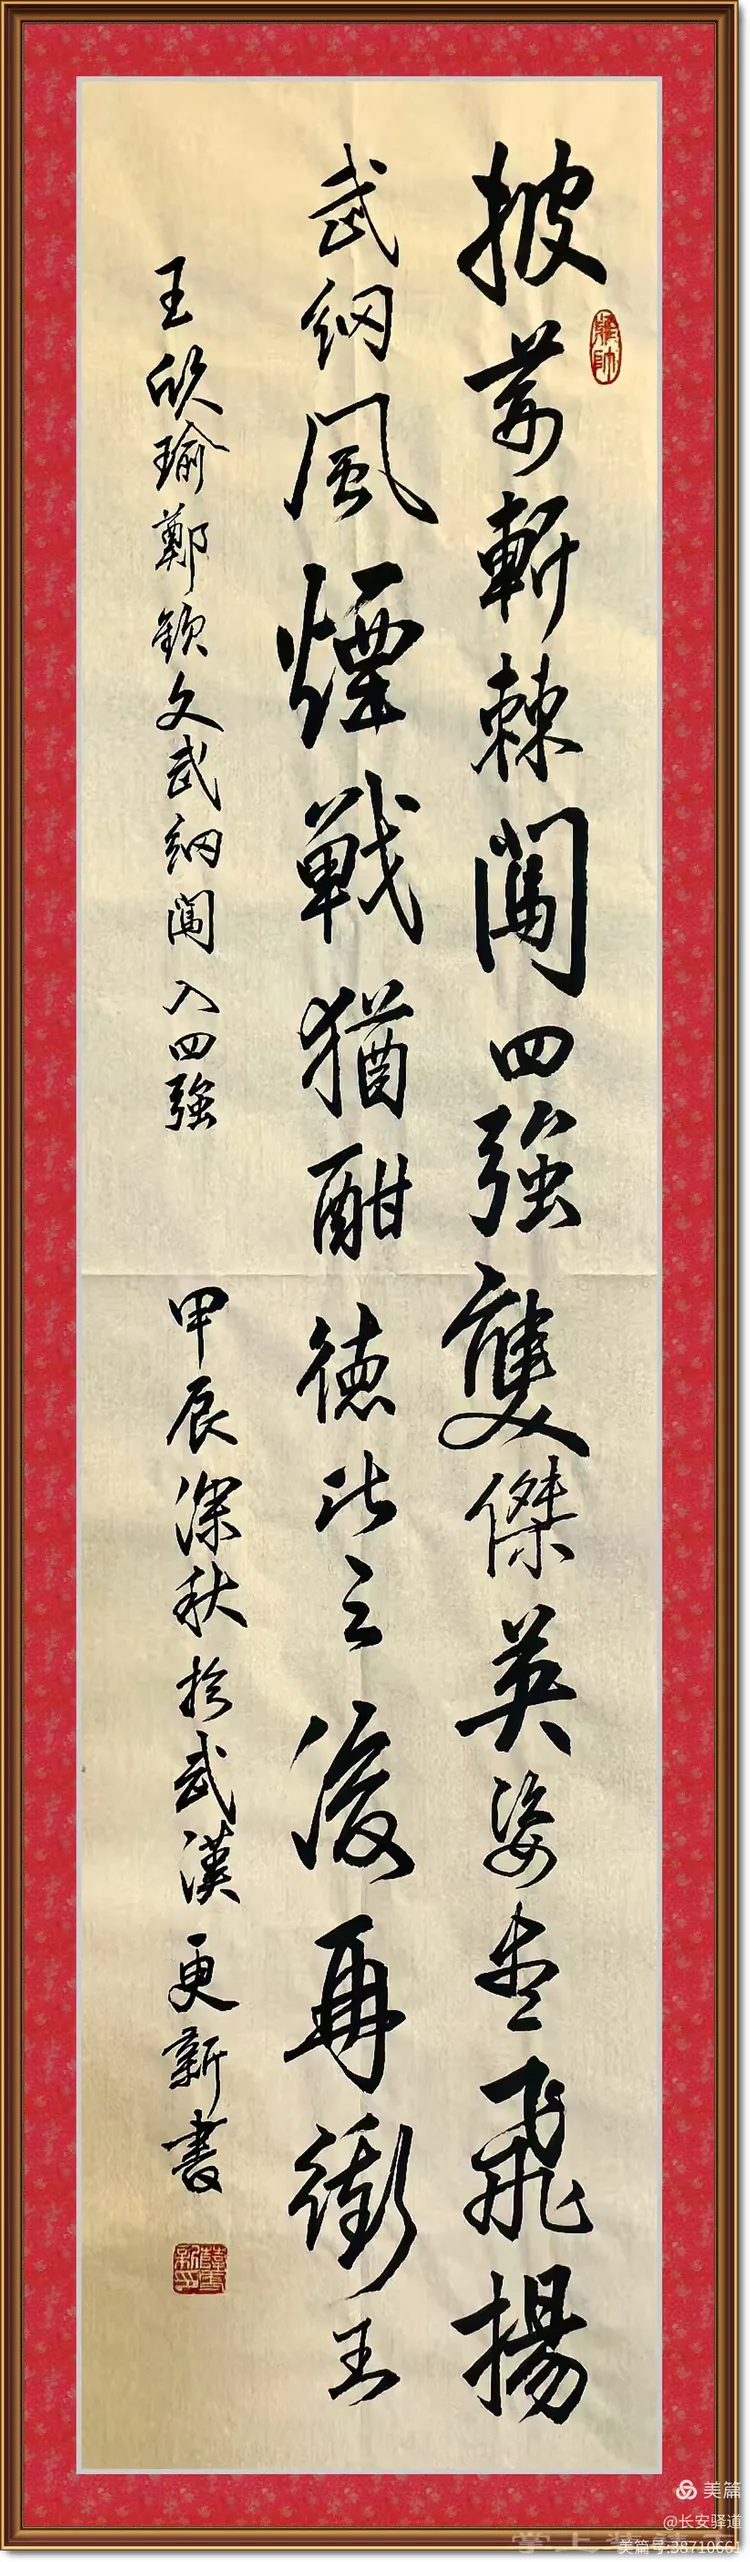 披荊斬棘闖四強雙傑英姿盡飛揚
武網風煙戰猶酣德比之後再衝王
王欣瑜鄭欽文武網闖入四強 甲辰深秋於武漢更新書
美篇
@长安驿道
美篇号:38710661